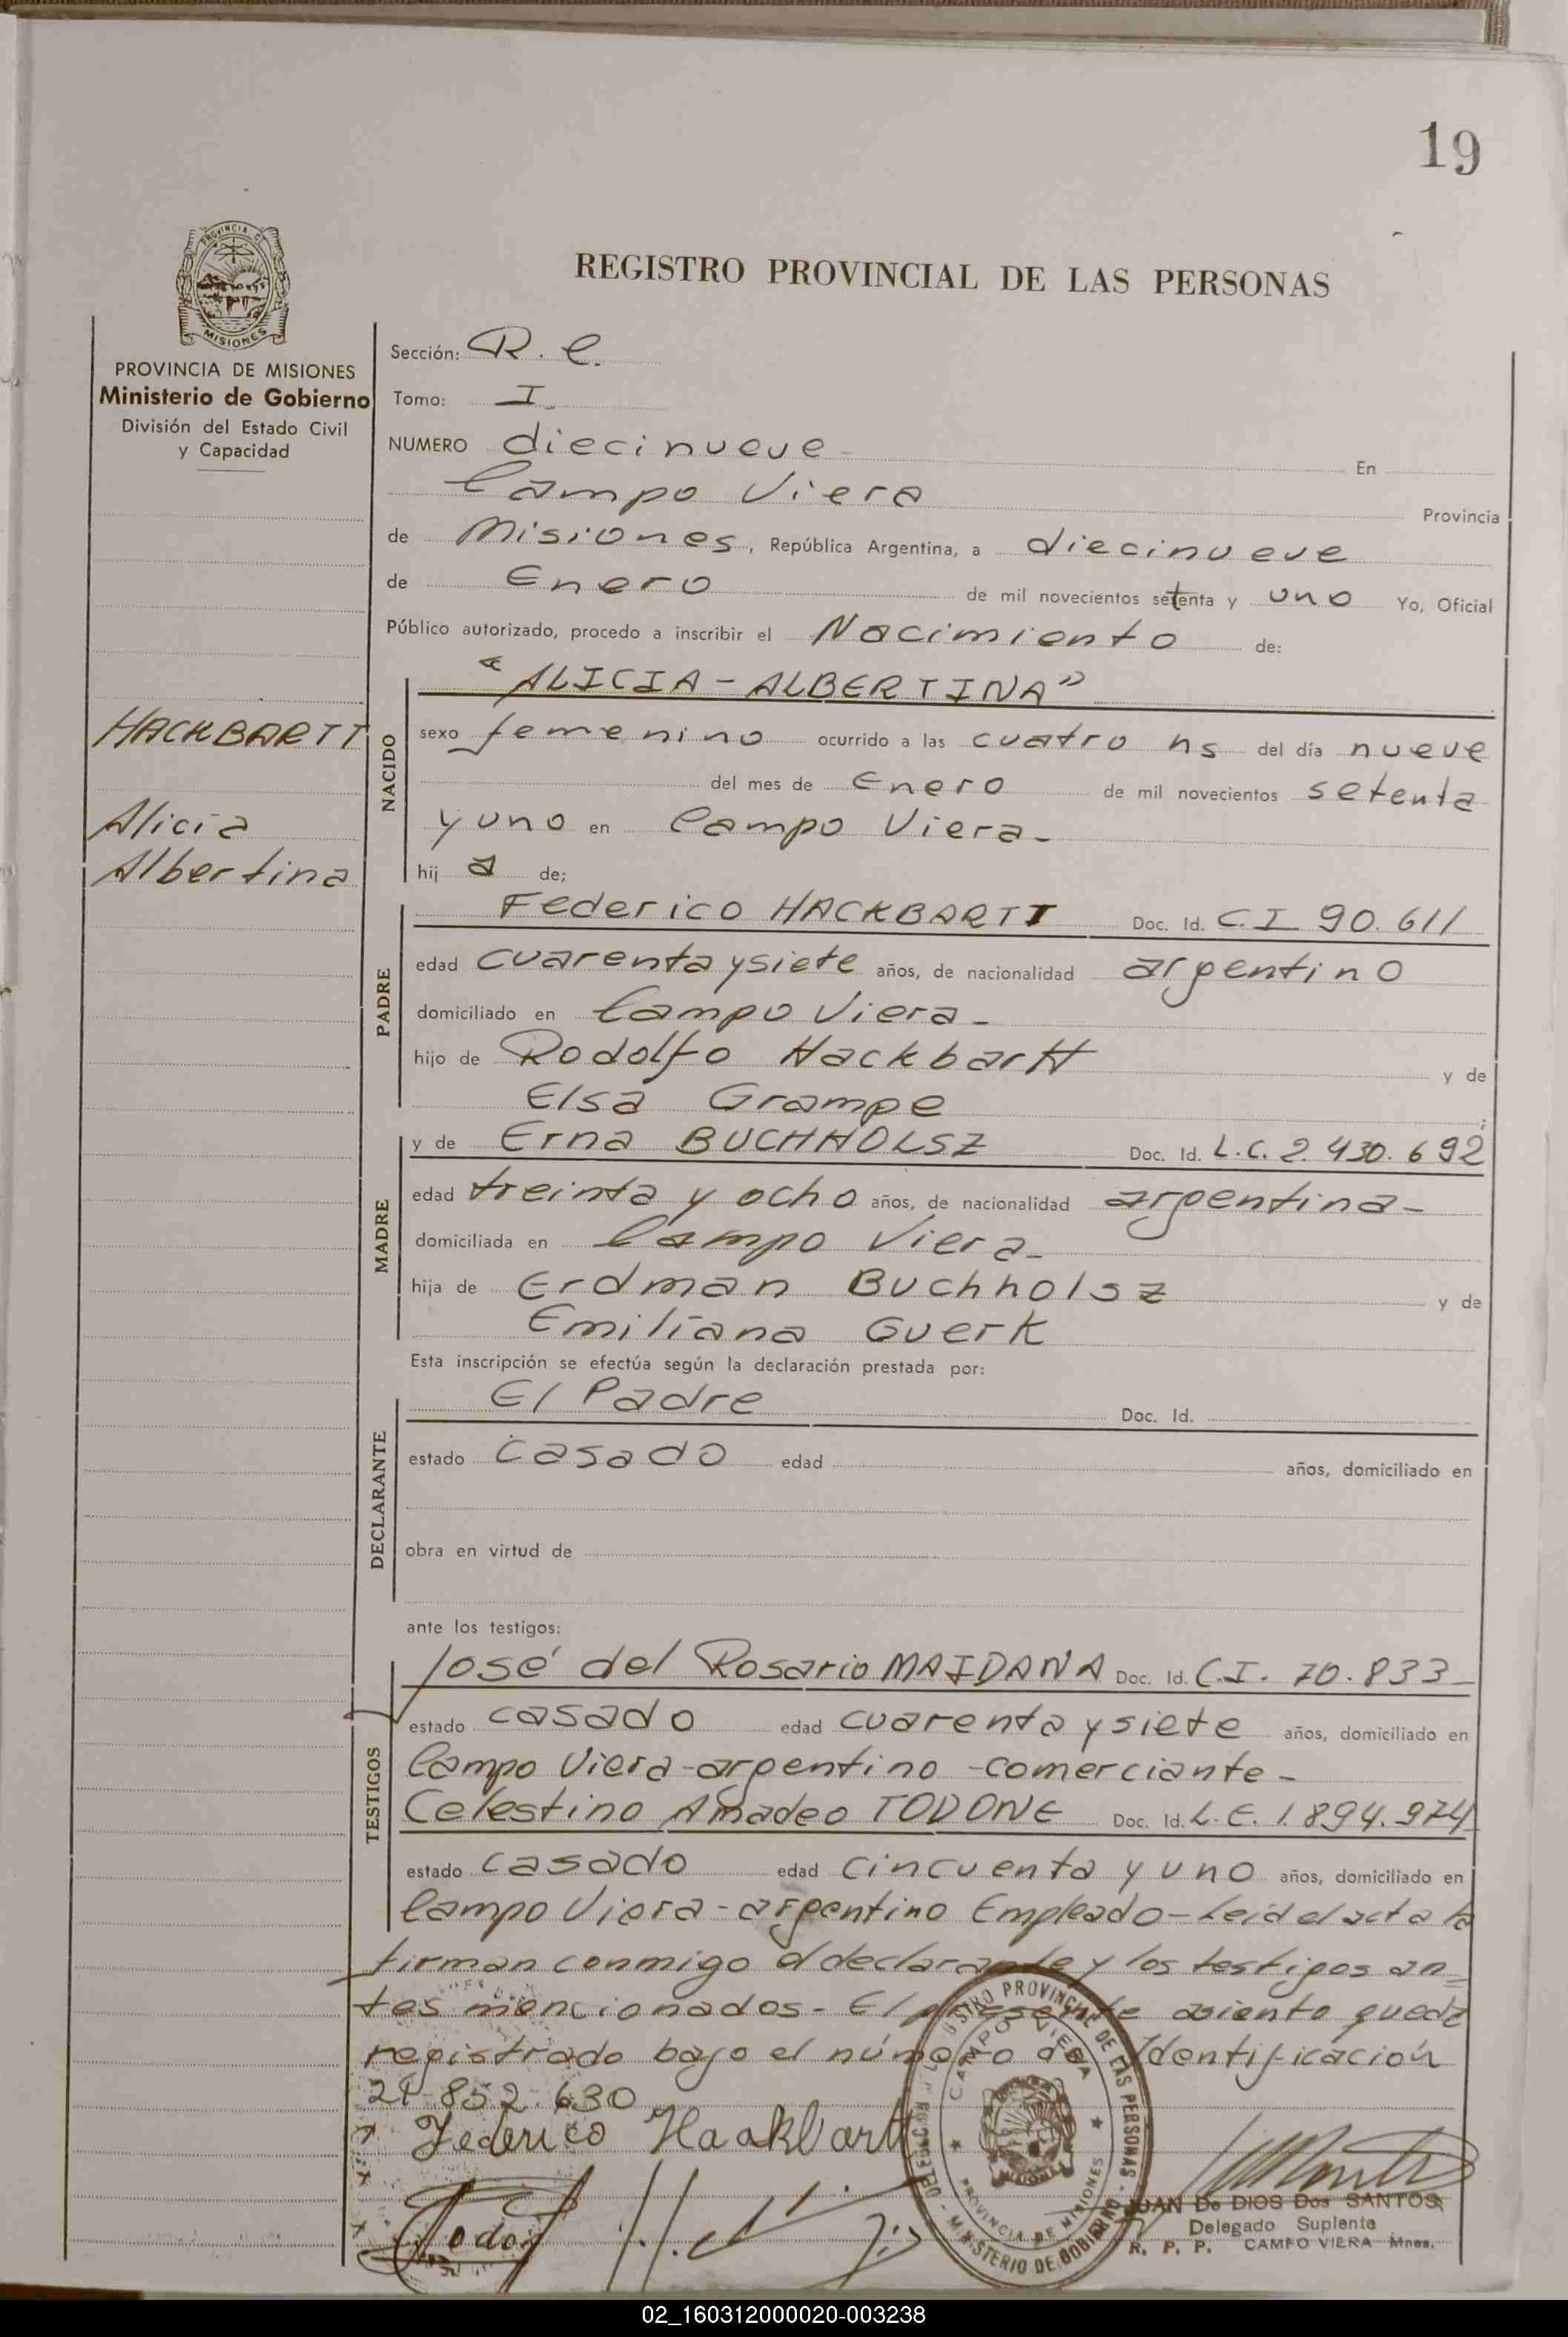 19
REGISTRO PROVINCIAL DE LAS PERSONAS
PROVINCIA DE MISIONES
Ministerio de Gobierno
División del Estado Civil
y Capacidad
Sección: R. C.
Tomo: I
NUMERO diecinueve En
Campo Viera Provincia
de Misiones, República Argentina, a diecinueve
de Enero de mil novecientos setenta y uno Yo, Oficial
Público autorizado, procedo a inscribir el Nacimiento de:
"ALICIA-ALBERTINA"
HACKBARTT
Alicia
Albertina
NACIDO
sexo femenino ocurrido a las cuatro hs del día nueve
del mes de Enero de mil novecientos setenta
y uno en Campo Viera-
hij a de;
PADRE
Federico HACKBARTT Doc. Id. C.I 90.611
edad cuarenta y siete años, de nacionalidad argentino
domiciliado en Campo Viera-
hijo de Rodolfo Hackbartt y de
Elsa Grampe
MADRE
y de Erna BUCHHOLSZ Doc. Id. L.C. 2.430.692
edad treinta y ocho años, de nacionalidad argentina-
domiciliada en Campo Viera-
hija de Erdman Buchholsz y de
Emiliana Guerk
Esta inscripción se efectúa según la declaración prestada por:
DECLARANTE
El Padre Doc. Id.
estado casado edad años, domiciliado en
obra en virtud de
ante los testigos:
TESTIGOS
José del Rosario MAIDANA Doc. Id. C.I. 70.833-
estado casado edad cuarenta y siete años, domiciliado en
Campo Viera-argentino-comerciante-
Celestino Amadeo TODONE Doc. Id. L.E. 1.894.974
estado casado edad cincuenta y uno años, domiciliado en
Campo Viera-argentino Empleado-Leid el acta la
firman conmigo el declarante y los testigos an=
tes mencionados- El presente asiento queda
registrado bajo el número de Identificación
21.852.630
Federico Hackbartt
DELEGACION DEL REGISTRO PROVINCIAL DE LAS PERSONAS - MINISTERIO DE GOBIERNO -
CAMPO VIERA
PROVINCIA DE MISIONES
JUAN De DIOS Dos SANTOS
Delegado Suplente
R. P. P. CAMPO VIERA Mnes.
02_160312000020-003238